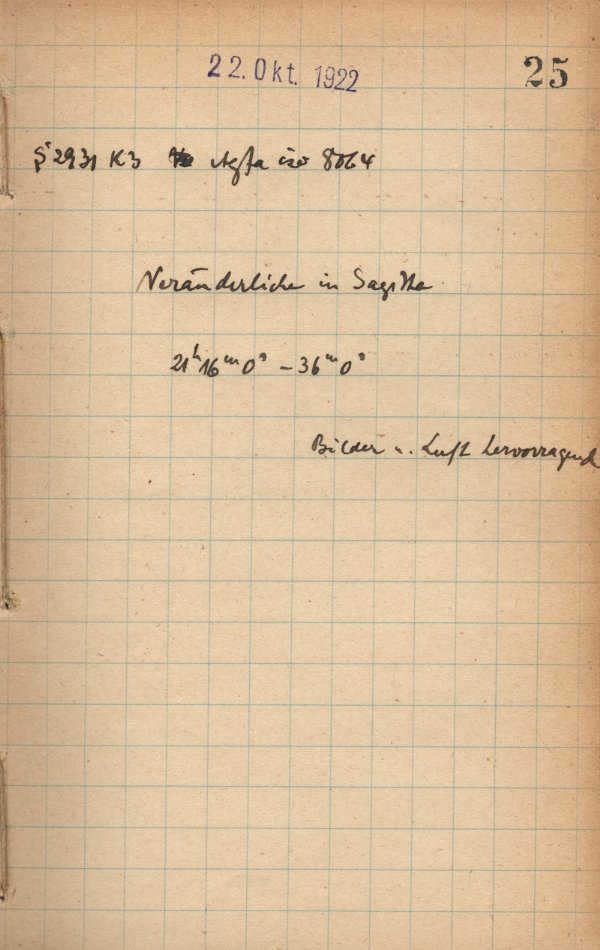 22. Okt. 1922
25
S 2931 K3 Agfa iso 8064
Veränderliche in Sagitta
21ʰ16ᵐ0ˢ – 36ᵐ0ˢ
Bilder u. Luft hervorragend